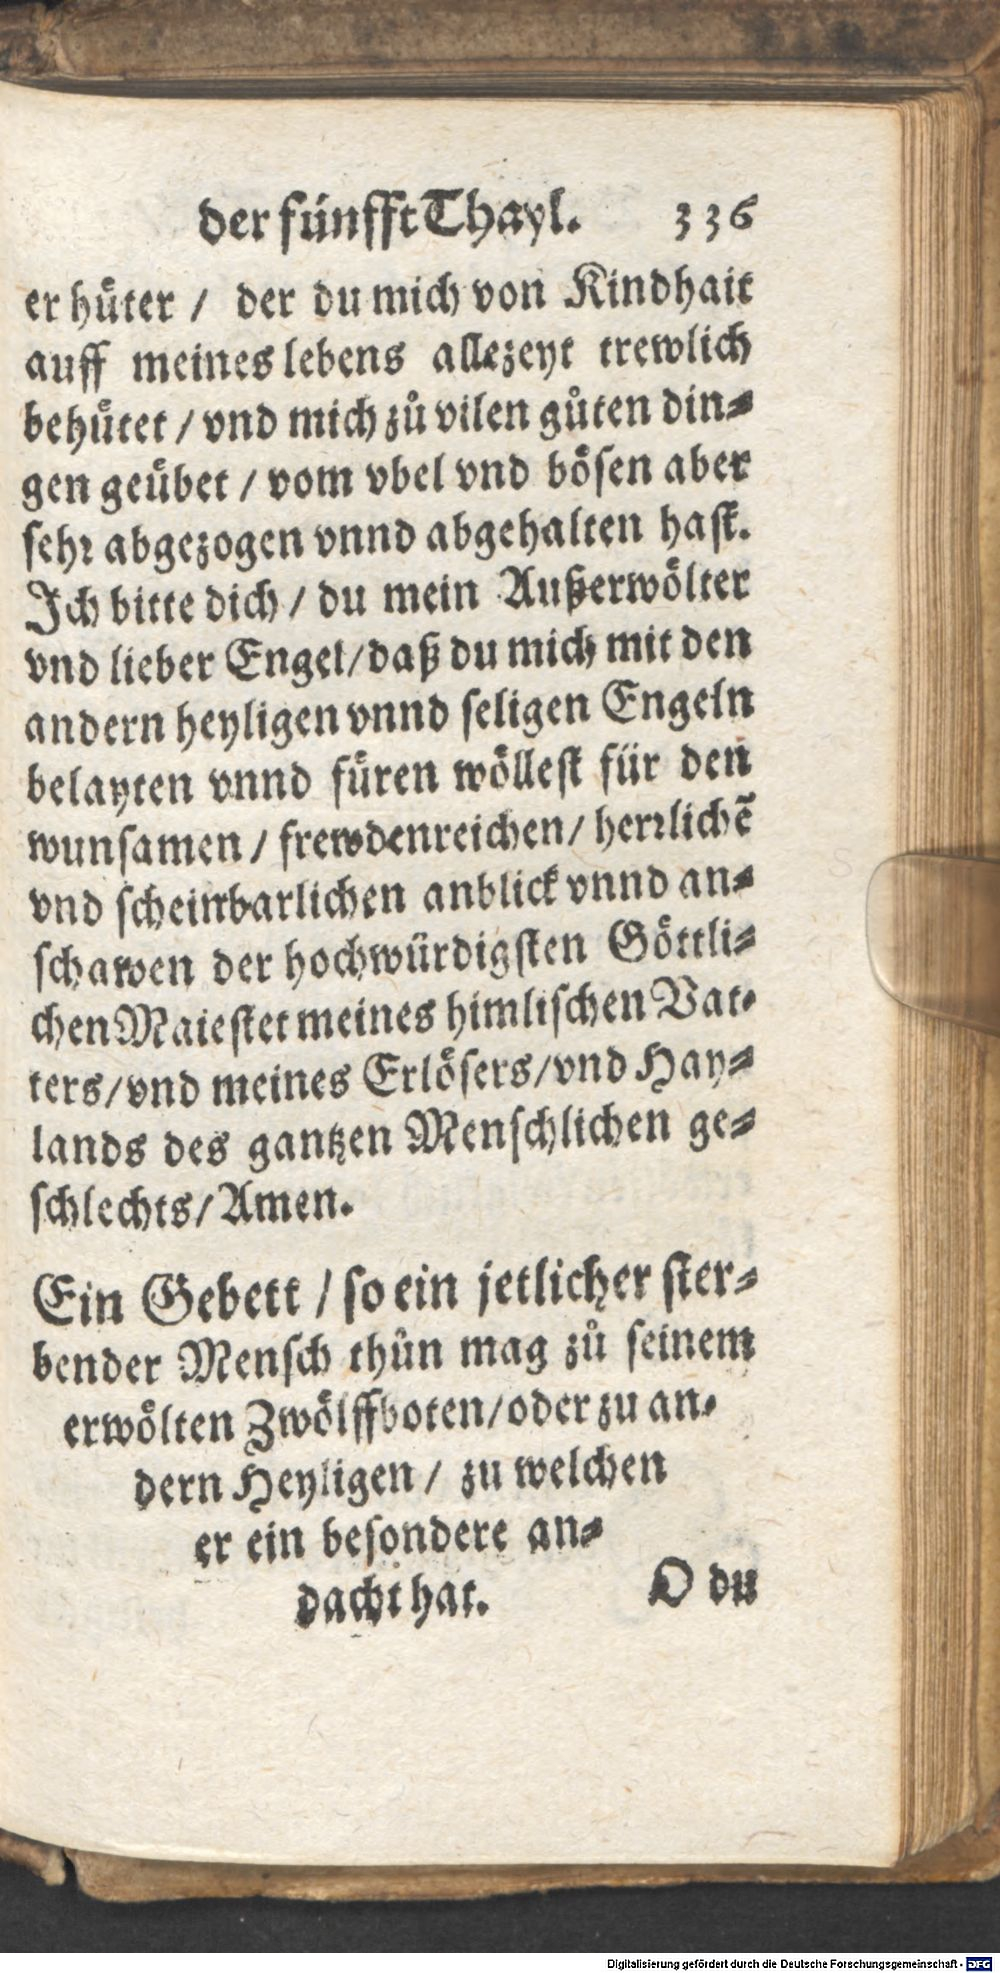 der fünfft Thayl. 336
er hüter / der du mich von Kindhait
auff meines lebens allezeyt trewlich
behütet / vnd mich zů vilen gůten din⸗
gen geübet / vom vbel vnd bösen aber
sehr abgezogen vnnd abgehalten hast.
Ich bitte dich / du mein Außerwölter
vnd lieber Engel / daß du mich mit den
andern heyligen vnnd seligen Engeln
belayten vnnd füren wöllest für den
wunsamen / frewdenreichen / herrlichẽ
vnd scheinbarlichen anblick vnnd an⸗
schawen der hochwürdigsten Göttli⸗
chen Maiestet meines himlischen Vat⸗
ters / vnd meines Erlösers / vnd Hay⸗
lands des gantzen Menschlichen ge⸗
schlechts / Amen.
Ein Gebett / so ein jetlicher ster⸗
bender Mensch thůn mag zů seinem
erwölten Zwölffboten / oder zu an⸗
dern Heyligen / zu welchen
er ein besondere an⸗
dacht hat. O du
Digitalisierung gefördert durch die Deutsche Forschungsgemeinschaft - DFG